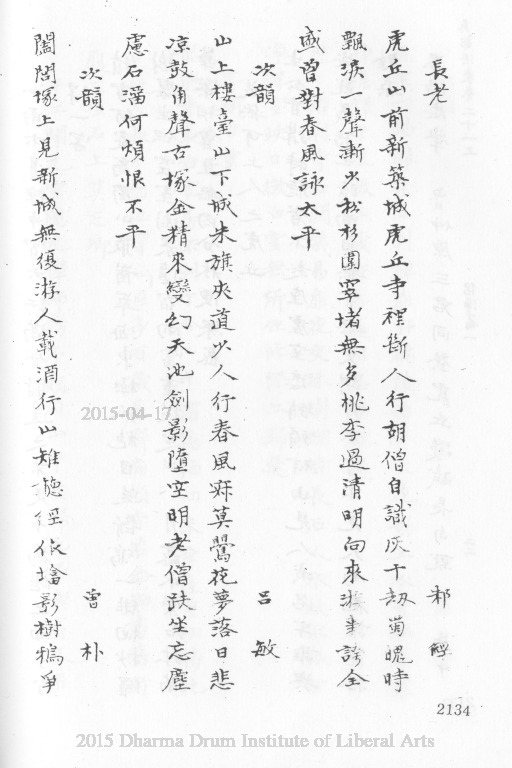 長老　郯韶
虎丘山前新築城虎丘寺裡斷人行胡僧自識灰千刼蜀魄時
飄淚一聲漸少松杉圍窣堵無多桃李過清明向來游事誇全
盛曾對春風詠太平
次韻　呂敏
山上樓臺山下城朱旗夾道少人行春風寂莫鶯花夢落日悲
凉鼓角聲古塚金精來變幻天池劍影墮空明老僧趺坐忘塵
慮石溜何煩恨不平
次韻　曾朴
闔閭塚上見新城無復游人載酒行山雉聽經依塔影樹鴉爭
2134
2015-04-17
2015 Dharma Drum Institute of Liberal Arts